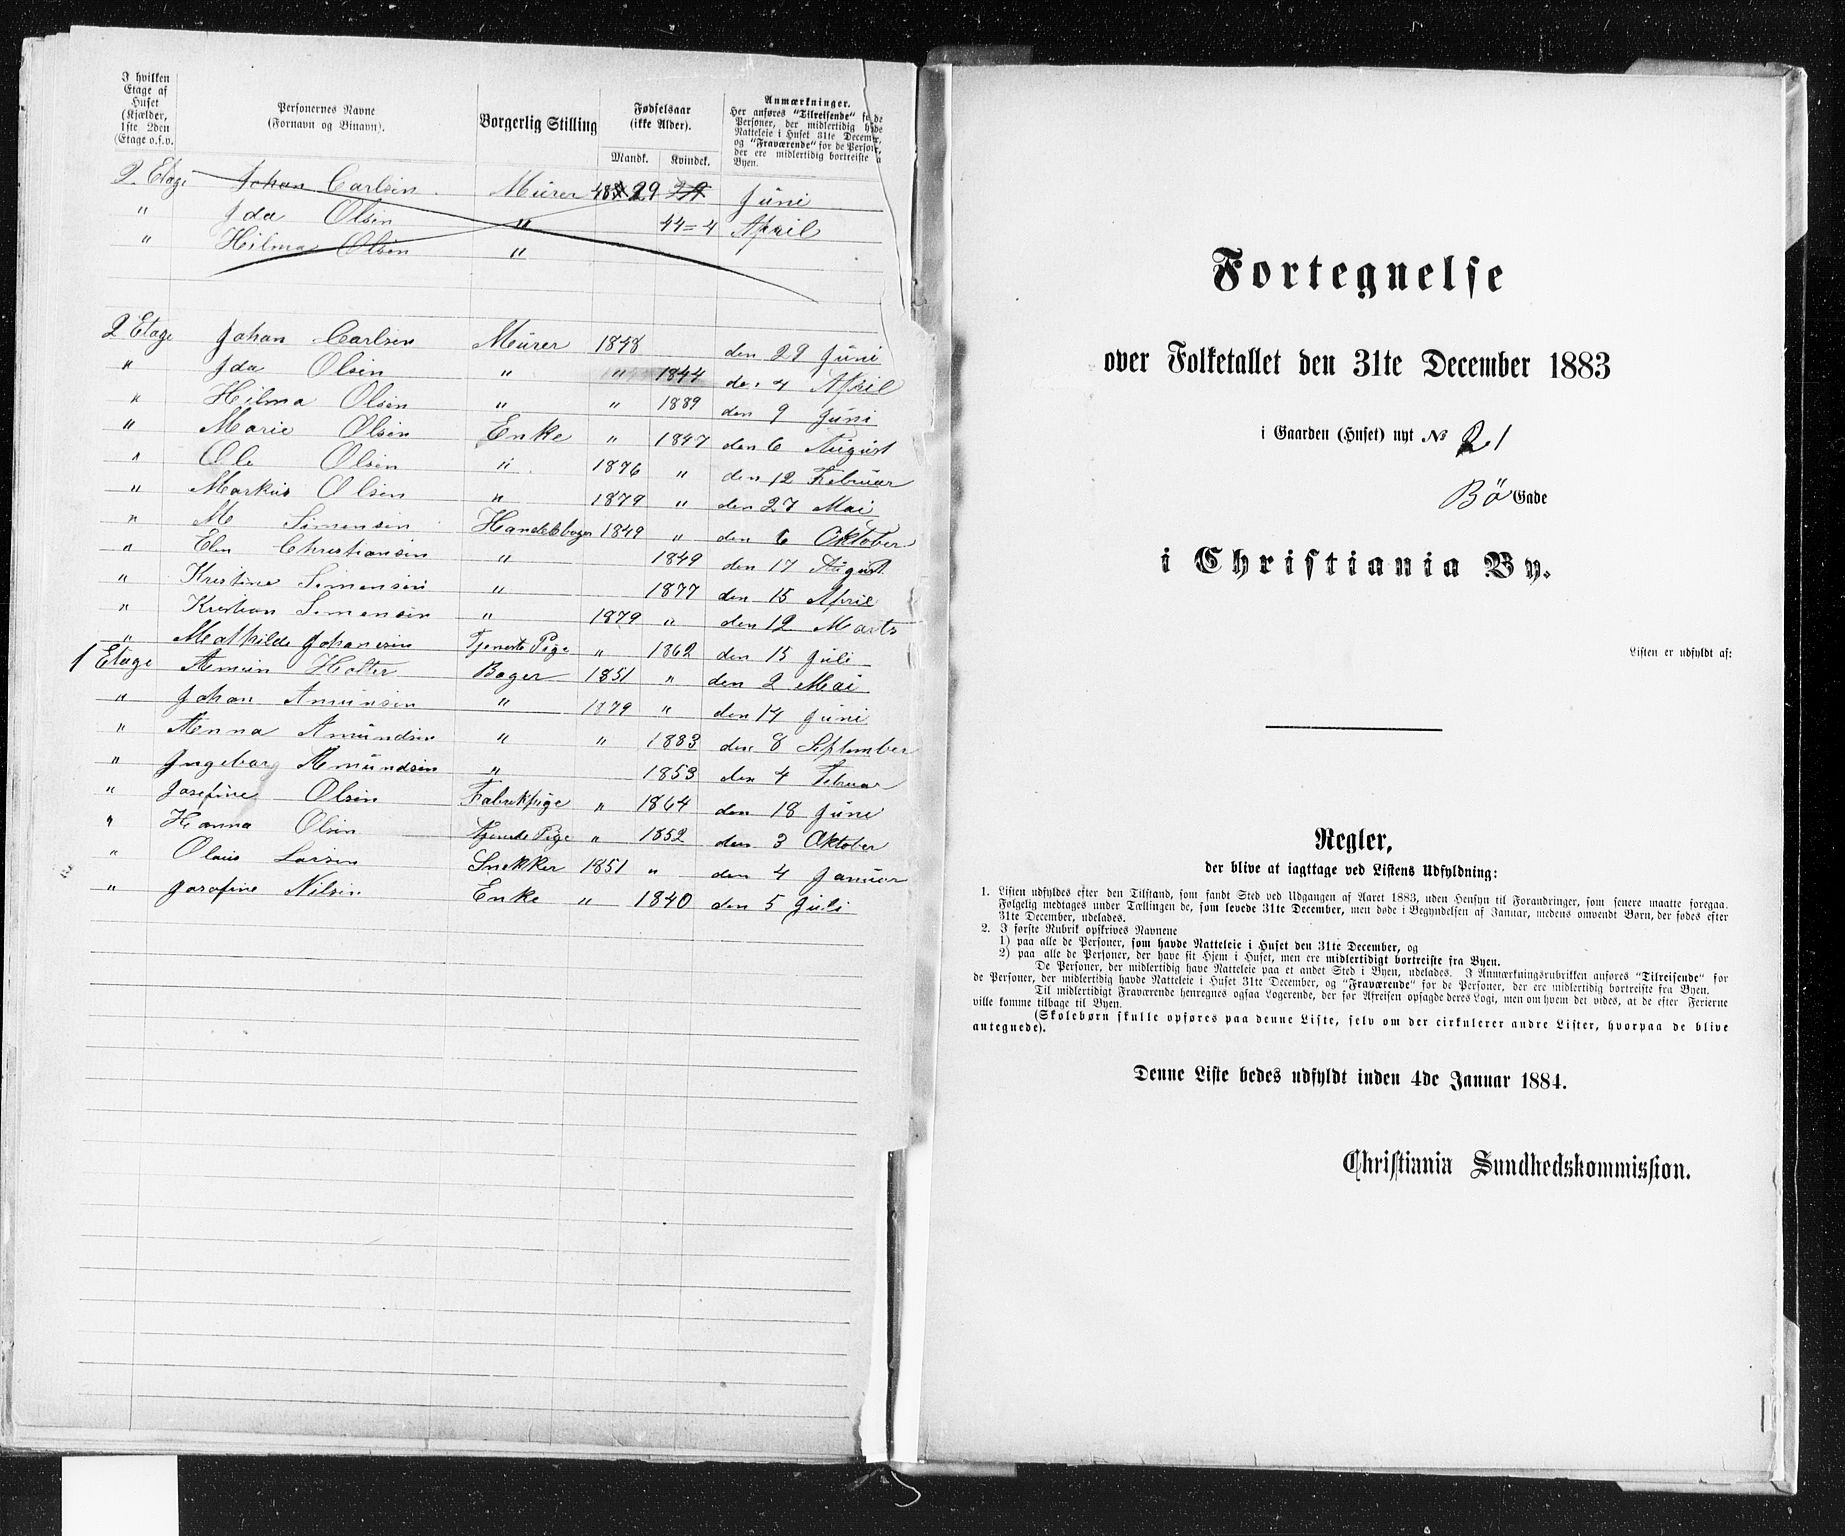 I hvilken
Etage af
Huset
(Kjælder,
1ste 2den
Etage o.s.v.
Personernes Navne
(Fornavn og Binavn).
Borgerlig Stilling
Fødselsaar
(ikke Alder).
Mandk. Kvindek.
Anmærkninger.
Her anføres "Tilreisende" for de
Personer, der midlertidig havde
Natteleie i Huset 31te December,
og "Fraværende" for de Personer,
der ere midlertidig bortreiste fra
Byen.
2. Etage Johan Carlsen Murer 29 Juni
" Ida Olsen " 44=4 April
" Hilma Olsen "
2 Etage Johan Carlsen Murer 1848 den 29 Juni
" Ida Olsen " " 1844 den 4 April
" Hilma Olsen " " 1889 den 9 Juni
" Marie Olsen Enke " 1847 den 6 August
" Ole Olsen " 1876 " den 12 Februar
" Markus Olsen " 1879 " den 27 Mai
" M Simensen Handelsbager 1849 " den 6 Oktober
" Elen Christiansen " 1849 den 17 August
" Kristine Simensen " 1877 den 15 April
" Kristian Simensen " 1879 " den 12 Marts
" Mathilde Johansen Tjeneste Pige " 1862 den 15 Juli
1 Etage Amun Holter Bager 1851 " den 2 Mai
" Johan Amunsen " 1879 " den 14 Juni
" Anna Amundsen " " 1883 den 8 September
" Ingeborg Amundsen " 1853 den 4 Februar
" Josefine Olsen Fabrikpige " 1864 den 18 Juni
" Hanna Olsen Tjeneste Pige " 1852 den 3 Oktober
" Olaus Larsen Snekker 1851 " den 4 Januar
" Josefine Nilsen Enke " 1840 den 5 Juli
Fortegnelse
over Folketallet den 31te December 1883
i Gaarden (Huset) nyt № 21
Bö Gade
i Christiania By.
Listen er udfyldt af:
Regler,
der blive at iagttage ved Listens Udfyldning:
1. Listen udfyldes efter den Tilstand, som fandt Sted ved Udgangen af Aaret 1883, uden Hensyn til Forandringer, som senere maatte foregaa.
Følgelig medtages under Tællingen de, som levede 31te December, men døde i Begyndelsen af Januar, medens omvendt Børn, der fødes efter
31te December, udelades.
2. I første Rubrik opskrives Navnene
1) paa alle de Personer, som havde Natteleie i Huset den 31te December, og
2) paa alle de Personer, der have sit Hjem i Huset, men ere midlertidigt bortreiste fra Byen.
De Personer, der midlertidig have Natteleie paa et andet Sted i Byen, udelades. I Anmærkningsrubrikken anføres "Tilreisende" for
de Personer, der midlertidig havde Natteleie i Huset 31te December, og "Fraværende" for de Personer, der ere midlertidig bortreiste fra Byen.
Til midlertidigt Fraværende henregnes ogsaa Logerende, der før Afreisen opsagde deres Logi, men om hvem det vides, at de efter Ferierne
ville komme tilbage til Byen.
(Skolebørn skulle opføres paa denne Liste, selv om der cirkulerer andre Lister, hvorpaa de blive
antegnede).
Denne Liste bedes udfyldt inden 4de Januar 1884.
Christiania Sundhedskommission.